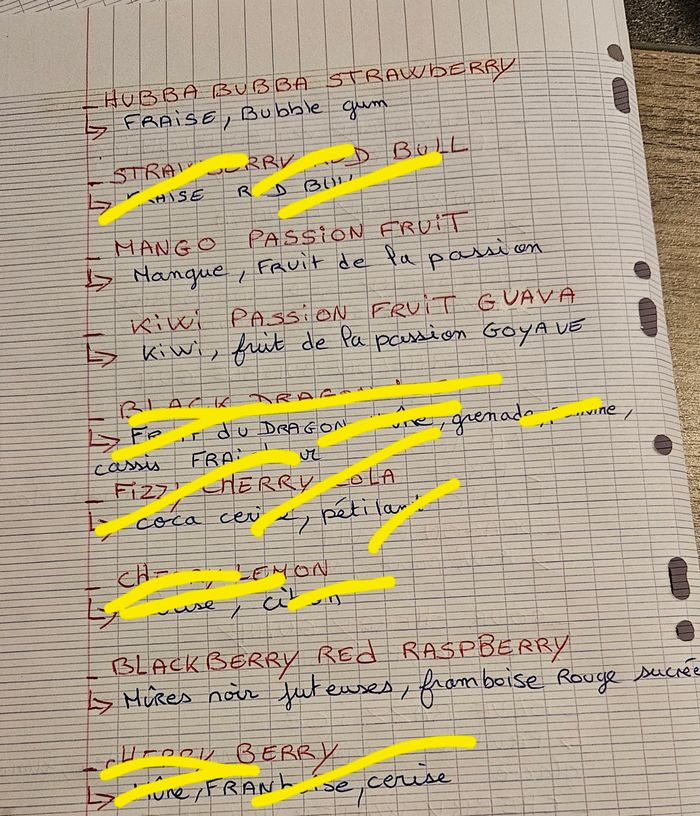 - HUBBA BUBBA STRAWBERRY
↳ FRAISE, Bubble gum
- STRAWBERRY RED BULL
↳ FRAISE RED BULL
- MANGO PASSION FRUIT
↳ Mangue, FRUIT de la passion
- KIWI PASSION FRUIT GUAVA
↳ KIWI, fruit de la passion GOYAVE
- BLACK DRAGON
↳ FRUIT du DRAGON mûre, grenade,
cassis FRAîcheur
- Fizzy CHERRY COLA
↳ coca cerise, pétilant
- CHERRY LEMON
↳ cerise, citron
- BLACKBERRY Red RASPBERRY
↳ Mûres noir juteuses, framboise Rouge sucrée
- CHERRY BERRY
↳ Mûre, FRAMboise, cerise